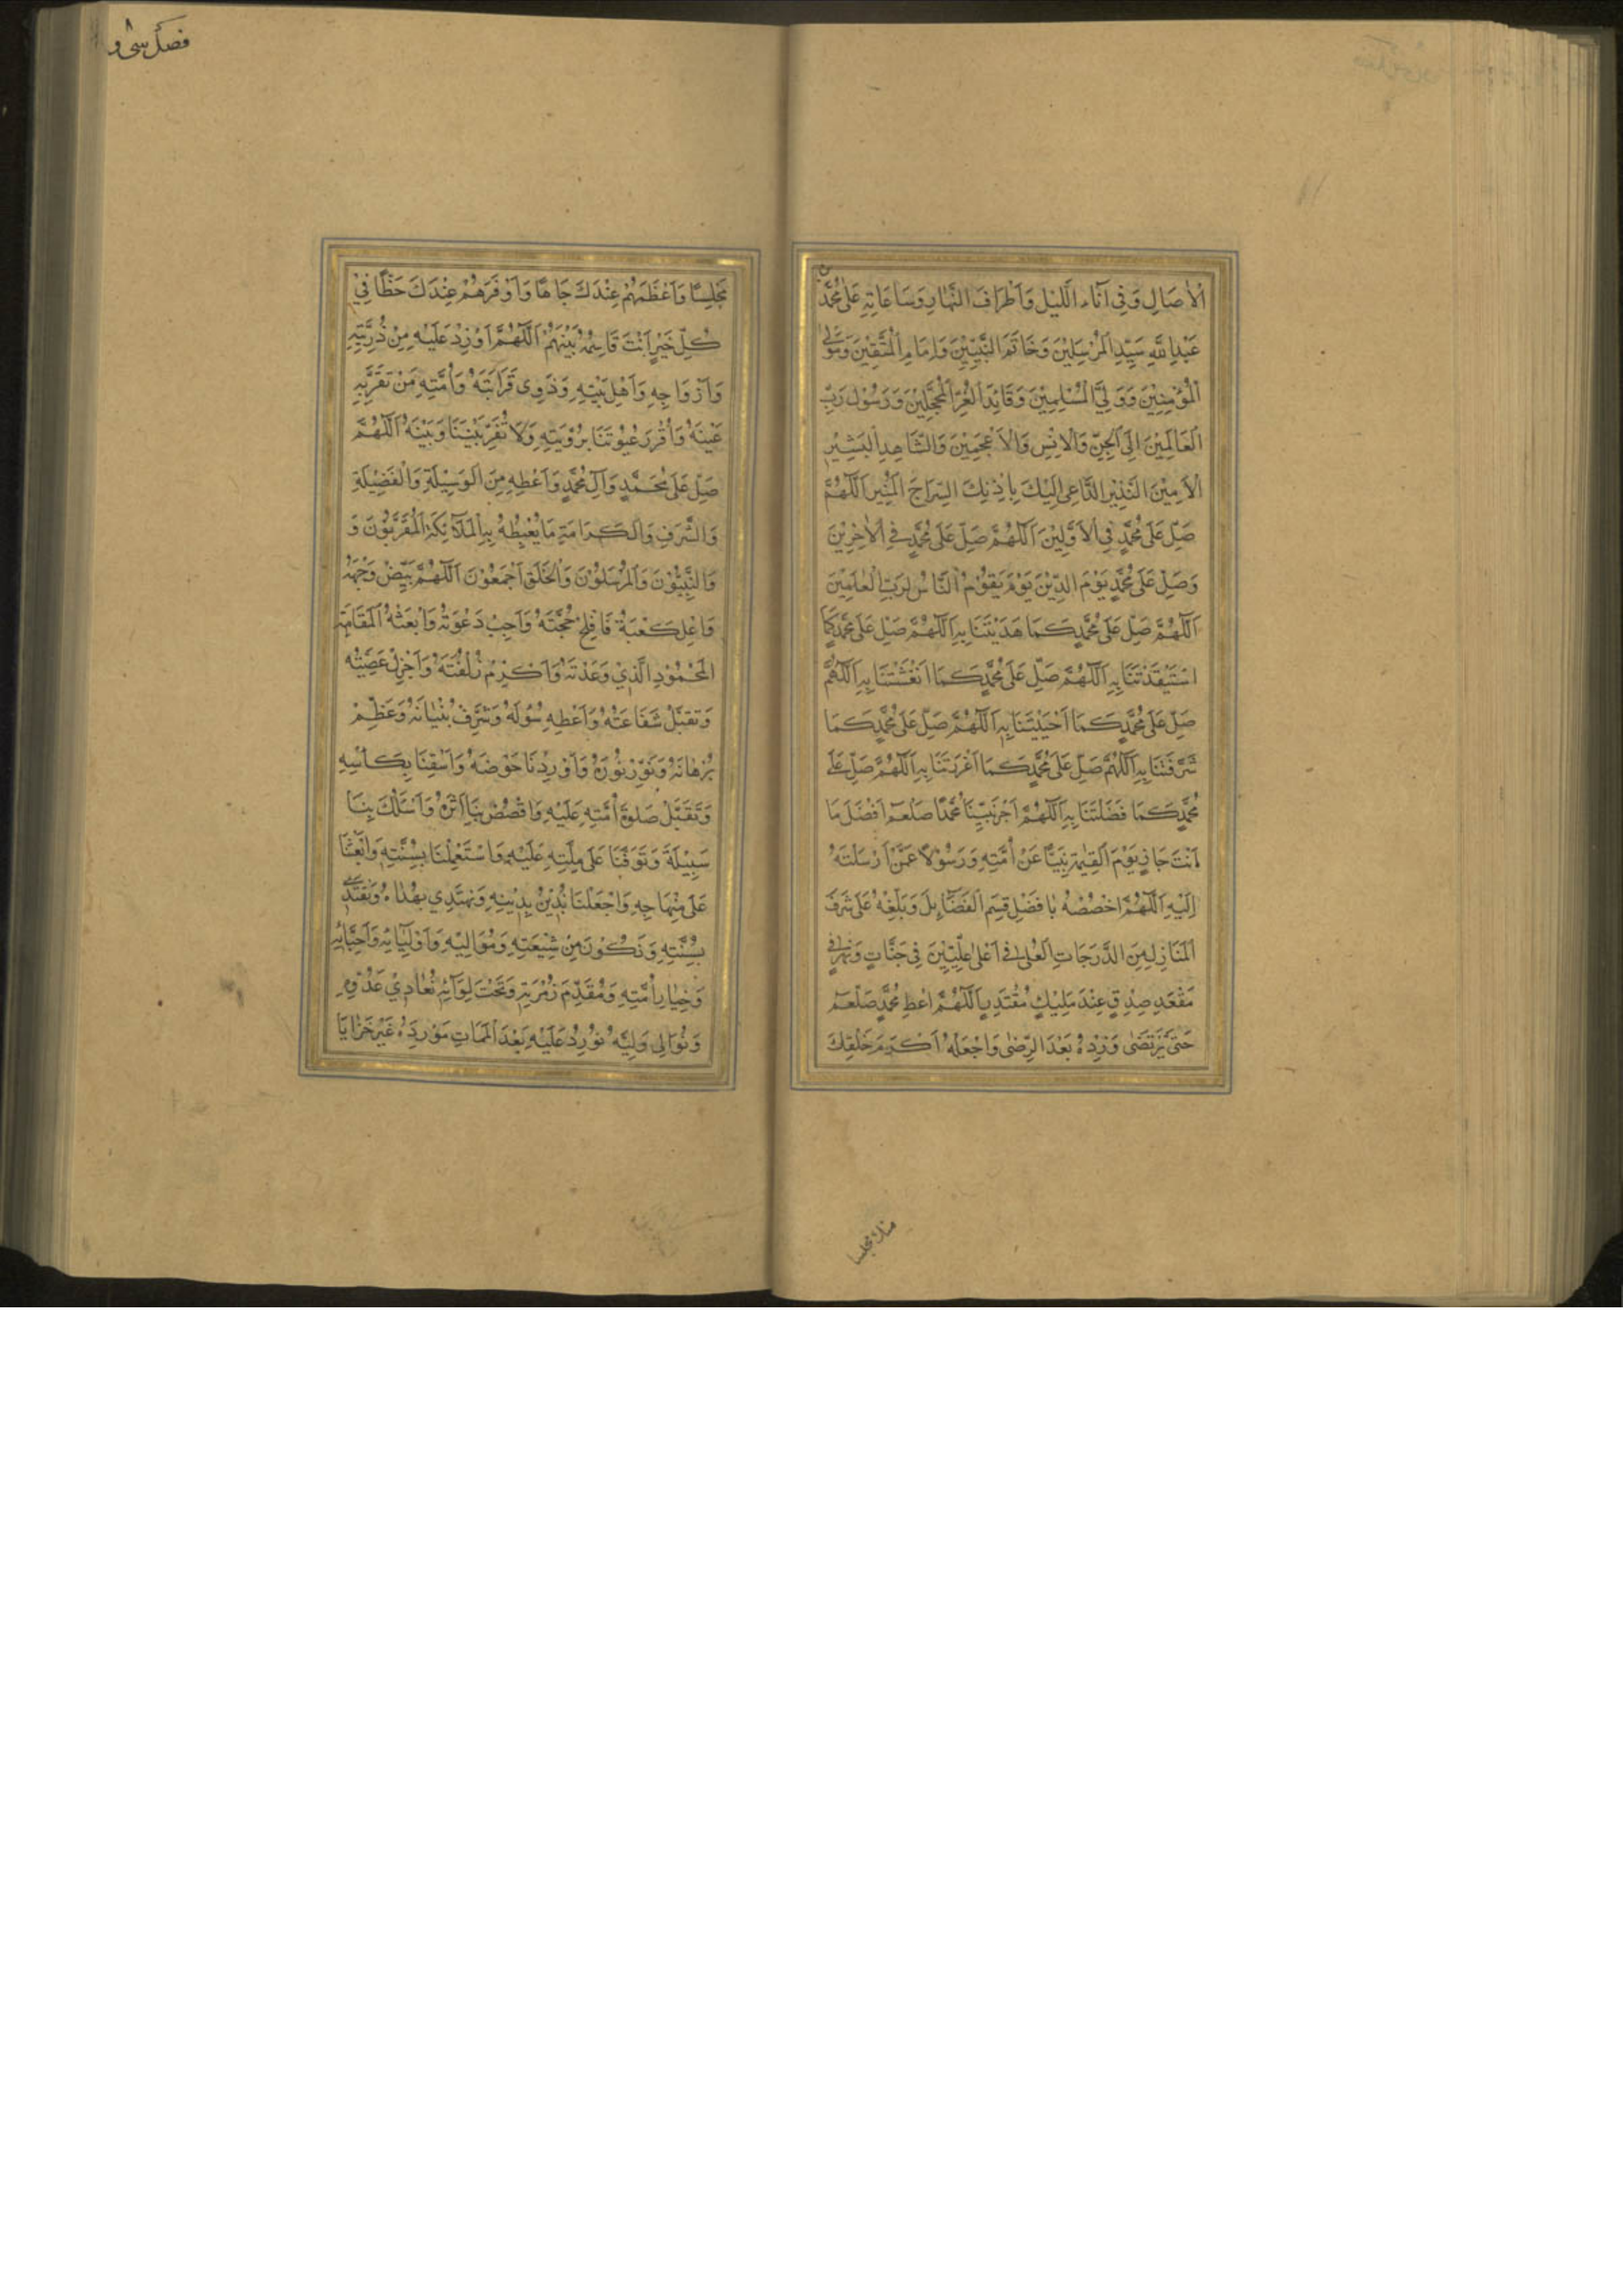 الْاٰصَالِ وَفِي آنَاءِ اللَّيْلِ وَاَطْرَافَ النَّهَارِ وَسَاعَاتِهِ عَلٰى مُحَمَّدٍ
عَبْدِ اللّٰهِ سَيِّدِ الْمُرْسَلِيْنَ وَخَاتَمَ النَّبِيِّيْنَ وَاِمَامِ الْمُتَّقِيْنَ وَمَوْلَى
الْمُؤْمِنِيْنَ وَوَلِيِّ الْمُسْلِمِيْنَ وَقَائِدِ الْغُرِّ الْمُحَجَّلِيْنَ وَرَسُوْلِ رَبِّ
الْعَالَمِيْنَ اِلَى الْجِنِّ وَالْاِنْسِ وَالْاَعْجَمِيْنَ وَالشَّاهِدِ الْبَشِيْرِ
الْاَمِيْنَ النَّذِيْرِ الدَّاعِي اِلَيْكَ بِاِذْنِكَ السِّرَاجَ الْمُنِيْرِ اَللّٰهُمَّ
صَلِّ عَلٰى مُحَمَّدٍ فِي الْاَوَّلِيْنَ اَللّٰهُمَّ صَلِّ عَلٰى مُحَمَّدٍ فِي الْاٰخِرِيْنَ
وَصَلِّ عَلٰى مُحَمَّدٍ يَوْمَ الدِّيْنِ يَوْمَ يَقُوْمُ النَّاسُ لِرَبِّ الْعٰلَمِيْنَ
اَللّٰهُمَّ صَلِّ عَلٰى مُحَمَّدٍ كَمَا هَدَيْتَنَا بِهِ اَللّٰهُمَّ صَلِّ عَلٰى مُحَمَّدٍ كَمَا
اسْتَيْقَذْتَنَا بِهِ اَللّٰهُمَّ صَلِّ عَلٰى مُحَمَّدٍ كَمَا اَنْعَشْتَنَا بِهِ اَللّٰهُمَّ
صَلِّ عَلٰى مُحَمَّدٍ كَمَا اَحْيَيْتَنَا بِهِ اَللّٰهُمَّ صَلِّ عَلٰى مُحَمَّدٍ كَمَا
شَرَّفْتَنَا بِهِ اَللّٰهُمَّ صَلِّ عَلٰى مُحَمَّدٍ كَمَا اَعْزَزْتَنَا بِهِ اَللّٰهُمَّ صَلِّ عَلٰى
مُحَمَّدٍ كَمَا فَضَّلْتَنَا بِهِ اَللّٰهُمَّ اَجْزِ نَبِيِّنَا مُحَمَّدًا صَلْعَمْ اَفْضَلَ مَا
اَنْتَ جَازٍ يَوْمَ الْقِيٰمَةِ نَبِيًّا عَنْ اُمَّتِهِ وَرَسُوْلًا عَمَّنْ اَرْسَلْتَهُ
اِلَيْهِ اَللّٰهُمَّ اخْصُصْهُ بِاَفْضَلِ قِسَمِ الْفَضَائِلِ وَبَلِّغْهُ عَلٰى شَرَفَ
الْمَنَازِلِ مِنَ الدَّرَجَاتِ الْعُلٰى فِي اَعْلٰى عِلِّيِّيْنَ فِي جَنَّاتٍ وَنَهَرٍ فِي
مَقْعَدِ صِدْقٍ عِنْدَ مَلِيْكٍ مُقْتَدِرٍ اَللّٰهُمَّ اَعْطِ مُحَمَّدٍ صَلْعَمْ
حَتّٰى يَرْتَضٰى وَزِدْهُ بَعْدَ الرِّضٰى وَاجْعَلْهُ اَكْرَمَ خَلْقِكَ
منك مجلسا
فصل سی و
مَجْلِسًا وَاَعْظَمَهُمْ عِنْدَكَ جَاهًا وَاَوْفَرَهُمْ عِنْدَكَ حَظًّا فِيْ
كُلِّ خَيْرٍ اَنْتَ قَاسِمُهُ بَيْنَهُمْ اَللّٰهُمَّ اَوْرِدْ عَلَيْهِ مِنْ ذُرِّيَّتِهِ
وَاَزْوَاجِهِ وَاَهْلِ بَيْتِهِ وَذَوِي قَرَابَتَهُ وَاُمَّتِهِ مَنْ تَقَرُّ بِهِ
عَيْنَهُ وَاَقْرِرْ عُيُوْنَنَا بِرُؤْيَتِهِ وَلَا تُفَرِّقْ بَيْنَنَا وَبَيْنَهُ اَللّٰهُمَّ
صَلِّ عَلٰى مُحَمَّدٍ وَآلِ مُحَمَّدٍ وَاَعْطِهِ مِنَ الْوَسِيْلَةِ وَالْفَضِيْلَةِ
وَالشَّرَفِ وَالْكَرَامَةِ مَا يُغْبِطُهُ بِهِ الْمَلَآئِكَةُ الْمُقَرَّبُوْنَ وَ
وَالنَّبِيُّوْنَ وَالْمُرْسَلُوْنَ وَالْخَلْقِ اَجْمَعُوْنَ اَللّٰهُمَّ بَيِّضْ وَجْهَهُ
وَاَعْلِ كَعْبَهُ فَافْلِحْ حُجَّتَهُ وَاَجِبْ دَعْوَتَهُ وَابْعَثْهُ الْمَقَامَ
الْمَحْمُوْدِ الَّذِيْ وَعَدْتَهُ وَاَكْرِمْ زُلْفَتَهُ وَاَجْزِلْ عَطِيَّتَهُ
وَتَقَبَّلْ شَفَاعَتَهُ وَاَعْطِهِ سُوْلَهُ وَشَرِّفْ بُنْيَانَهُ وَعَظِّمْ
بُرْهَانَهُ وَنَوِّرْ نُوْرَهُ وَاَوْرِدْنَا حَوْضَهُ وَاَسْقِنَا بِكَأْسِهِ
وَتَقَبَّلْ صَلٰوةَ اُمَّتِهِ عَلَيْهِ وَاقْصُصْ بِنَا اَثَرَهُ وَاَسْلُكْ بِنَا
سَبِيْلَهُ وَتَوَفَّنَا عَلٰى مِلَّتِهِ عَلَيْهِ وَاسْتَعْمِلْنَا بِسُنَّتِهِ وَابْعَثْنَا
عَلٰى مِنْهَاجِهِ وَاجْعَلْنَا نُدِيْنُ بِدِيْنِهِ وَنَهْتَدِي بِهُدَاهُ وَنَقْتَدِي
بِسُنَّتِهِ وَنَكُوْنَ مِنْ شِيْعَتِهِ وَمَوَالِيْهِ وَاَوْلِيَائِهِ وَاَحِبَّائِهِ
وَخِيَارِ اُمَّتِهِ وَمُقَدَّمِ زُمْرَتِهِ وَتَحْتَ لِوَآئِهِ نُعَادِيْ عَدُوِّهِ
وَنُوَالِي وَلِيَّهُ نُوْرِدُ عَلَيْهِ بَعْدَ الْمَمَاتِ مَوْرِدَهُ غَيْرَ خَزَايَا